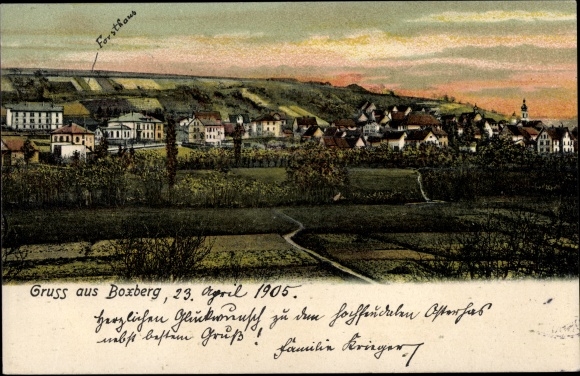 Forsthaus
Gruss aus Boxberg, 23. April 1905.
Herzlichen Glückwunsch zu dem hochfeudalen Osterhas
nebst bestem Gruß!
Familie Krieger